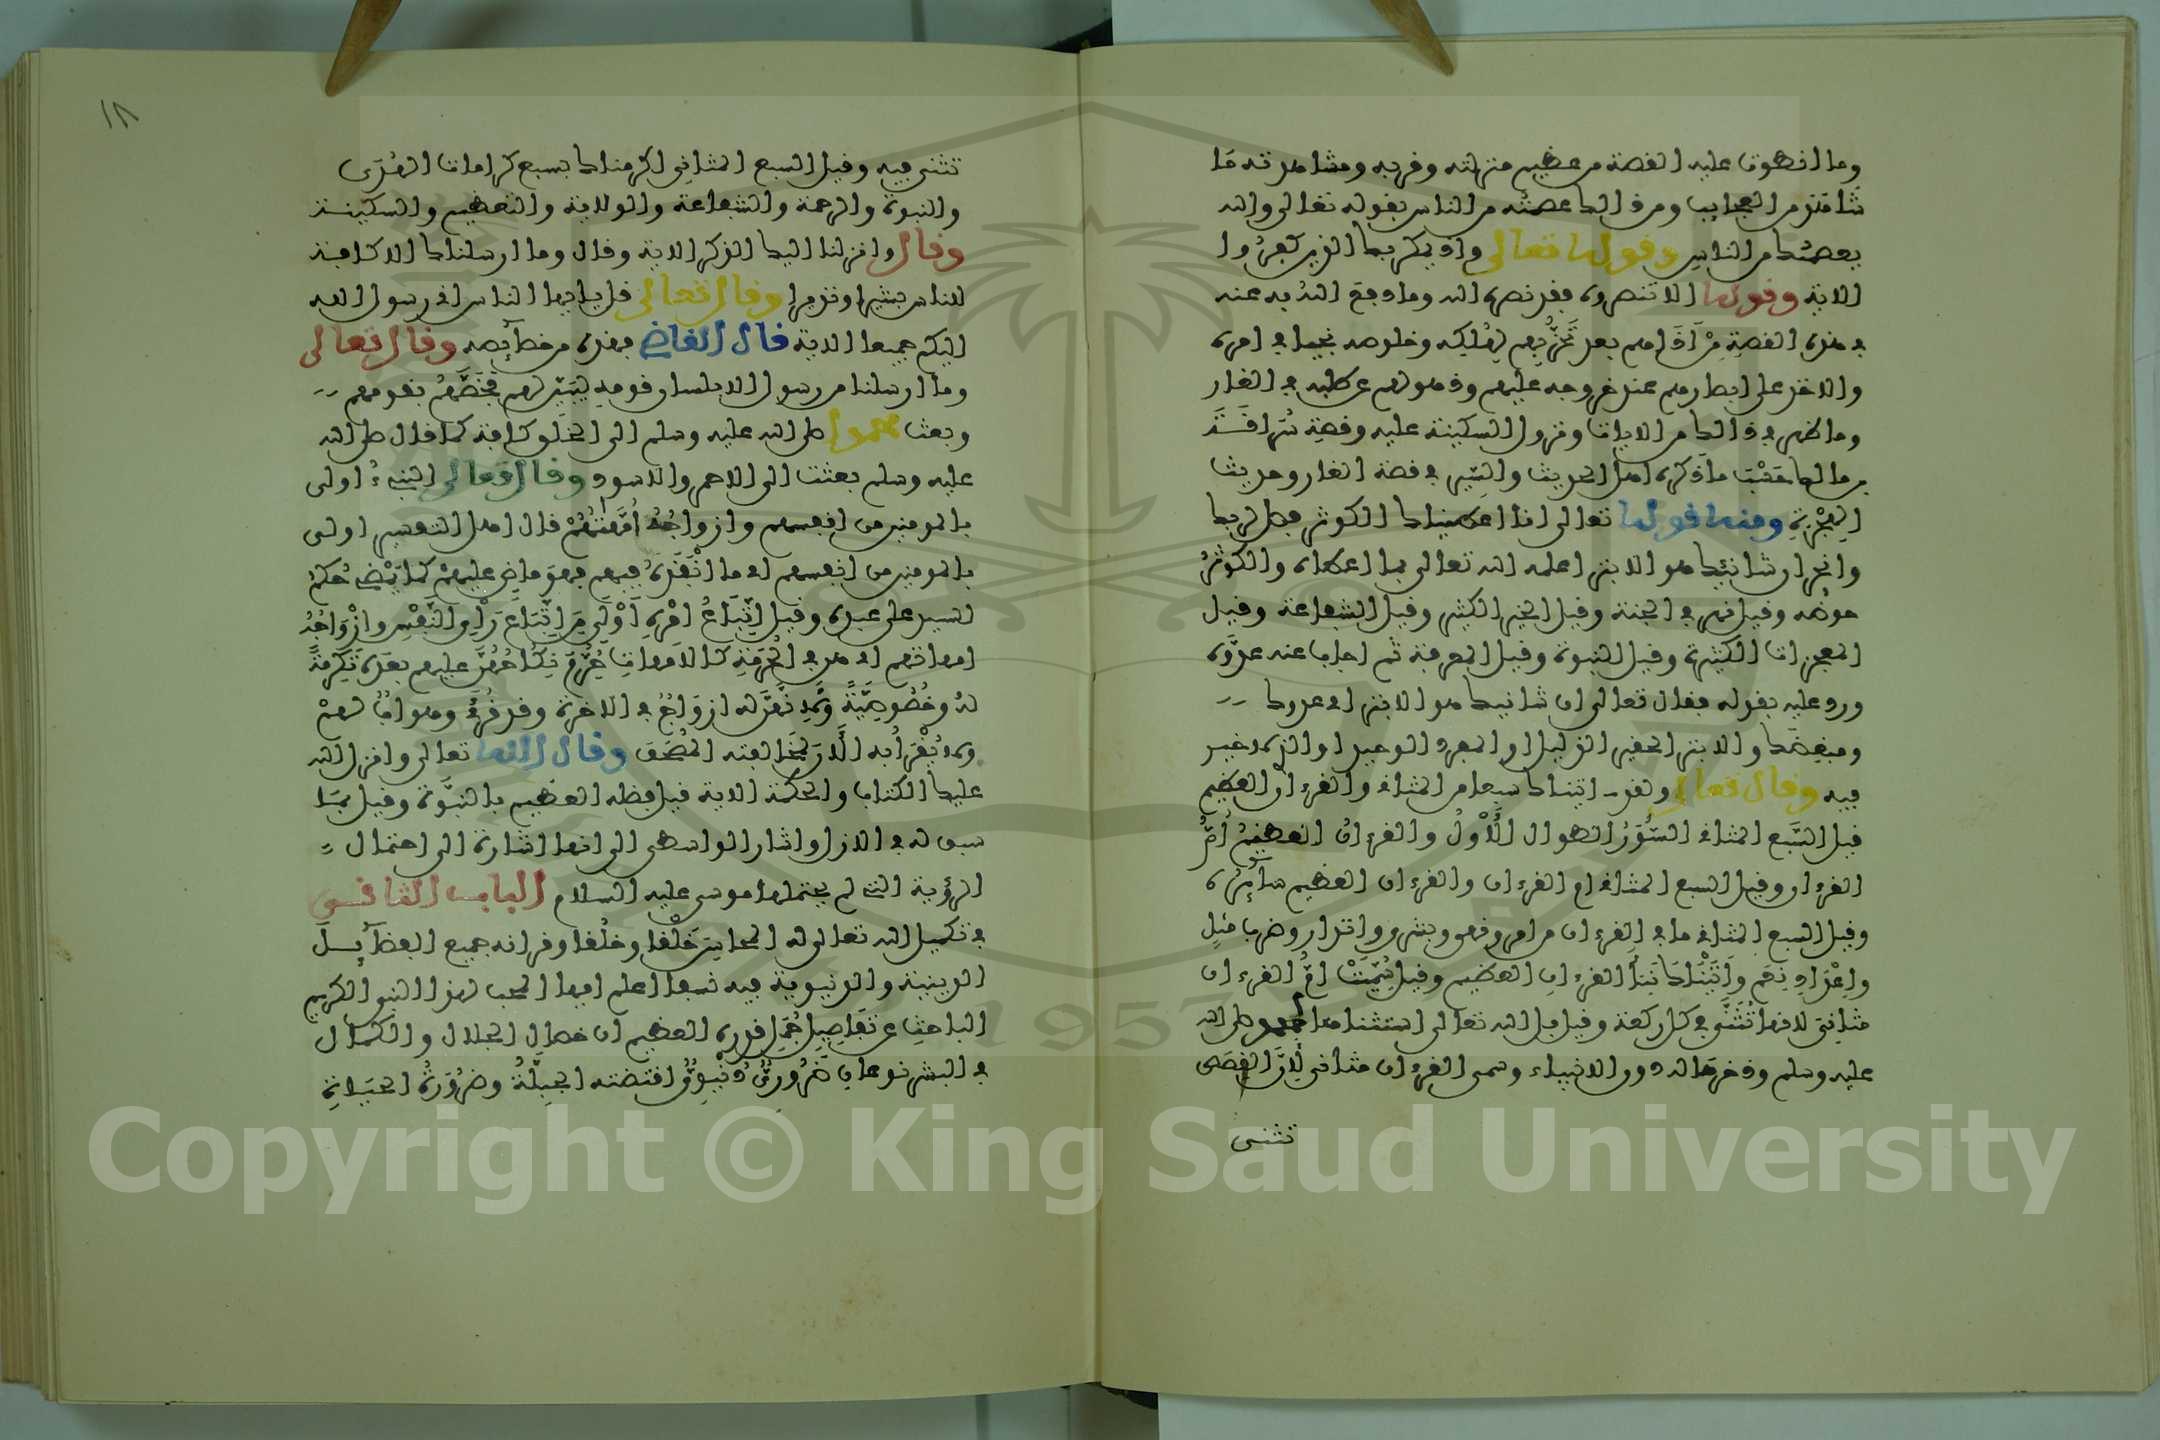 وما انطوت عليه القصة من عظيم منزلته وقربه ومشاهدته ما
شاهد من العجايب ومن ذالك عصمته من الناس بقوله تعالى والله
يعصمك من الناس وقوله تعالى واذ يمكر بك الذين كفروا
الاية وقوله الا تنصروه فقد نصره الله وما دفع الله به عنه
في هذه القصة من اذاهم بعد تحزبهم لهلكه وخلوصهم نجيا في امره
والاخذ على ابصارهم عند خروجه عليهم وذهولهم عن طلبه في الغار
وما ظهر في ذالك من الايات ونزول السكينة عليه وقصة سراقة
بن مالك حسبما ذكره اهل الحديث والسير في قصة الغار وحديث
الهجرة ومنه قوله تعالى انا اعطيناك الكوثر فصل لربك
وانحر ان شانئك هو الابتر اعلمه الله تعالى بما اعطاه والكوثر
حوضه وقيل نهر في الجنة وقيل الخير الكثير وقيل الشفاعة وقيل
المعجزات الكثيرة وقيل النبوة وقيل المعرفة ثم اجاب عنه عدوه
ورد عليه بقوله فقال تعالى ان شانيك هو الابتر اي عدوك
ومبغضك والابتر الحقير الذليل او المفرد الوحيد او الذي لا خير
فيه وقال تعالى ولقد اتيناك سبعا من المثاني والقرءان العظيم
قيل السبع المثاني السور الطوال الاول والقرءان العظيم ام
القرءان وقيل السبع المثاني ام القرءان والقرءان العظيم سائره
وقيل السبع المثاني ما في القرءان من امر ونهي وبشرى وانذار وضرب مثل
واعداد نعم واتيناك نبأ القرءان العظيم وقيل سميت ام القرءان
مثاني لانها تثنى في كل ركعة وقيل بل الله تعالى استثناها لمحمد صلى الله
عليه وسلم وذخرها له دون الانبياء وسمي القرءان مثاني لان القصص
تثنى
١٨
تثنى فيه وقيل السبع المثاني اكرمناك بسبع كرامات الهدى
والنبوة والرحمة والشفاعة والولاية والتعظيم والسكينة
وقال وانزلنا اليك الذكر الاية وقال وما ارسلناك الا كافة
للناس بشيرا ونذيرا وقال تعالى قل ياايها الناس اني رسول الله
اليكم جميعا الاية قال القاضي فهذه من خصآئصه وقال تعالى
وما ارسلنا من رسول الا بلسان قومه ليبين لهم فخصهم بقومهم
وبعث محمدا صلى الله عليه وسلم الى الخلق كافة كما قال صلى الله
عليه وسلم بعثت الى الاحمر والاسود وقال تعالى النبيء اولى
بالمومنين من انفسهم وازواجه امهاتهم قال اهل التفسير اولى
بالمومنين من انفسهم اي ما انفذه فيهم فهو ماض عليهم كما يمضي حكم
السيد على عبده وقيل اتباع امره اولى من اتباع رأي النفس وازواجه
امهاتهم اي هن في الحرمة كالامهات حرم نكاحهن عليهم بعده تكرمة
له وخصوصية ولانهن له ازواج في الاخرة وقد قرئ وهو اب لهم
ولا يقرأ به الآن لمخالفته المصحف وقال الله تعالى وانزل الله
عليك الكتاب والحكمة الاية قيل فضله العظيم بالنبوة وقيل بما
سبق له في الازل واشار الواسطي الى انها اشارة الى احتمال
الرؤية التي لم يحتملها موسى عليه السلام الباب الثاني
في تكميل الله تعالى له المحاسن خلقا وخلقا وقرانه جميع الفضآيل
الدينية والدنيوية فيه نسقا اعلم ايها المحب لهذا النبي الكريم
الباحث عن تفاصيل جمل قدره العظيم ان خصال الجلال والكمال
في البشر نوعان ضروري دنيوي اقتضته الجبلة وضرورة الحياة
Copyright © King Saud University
1957